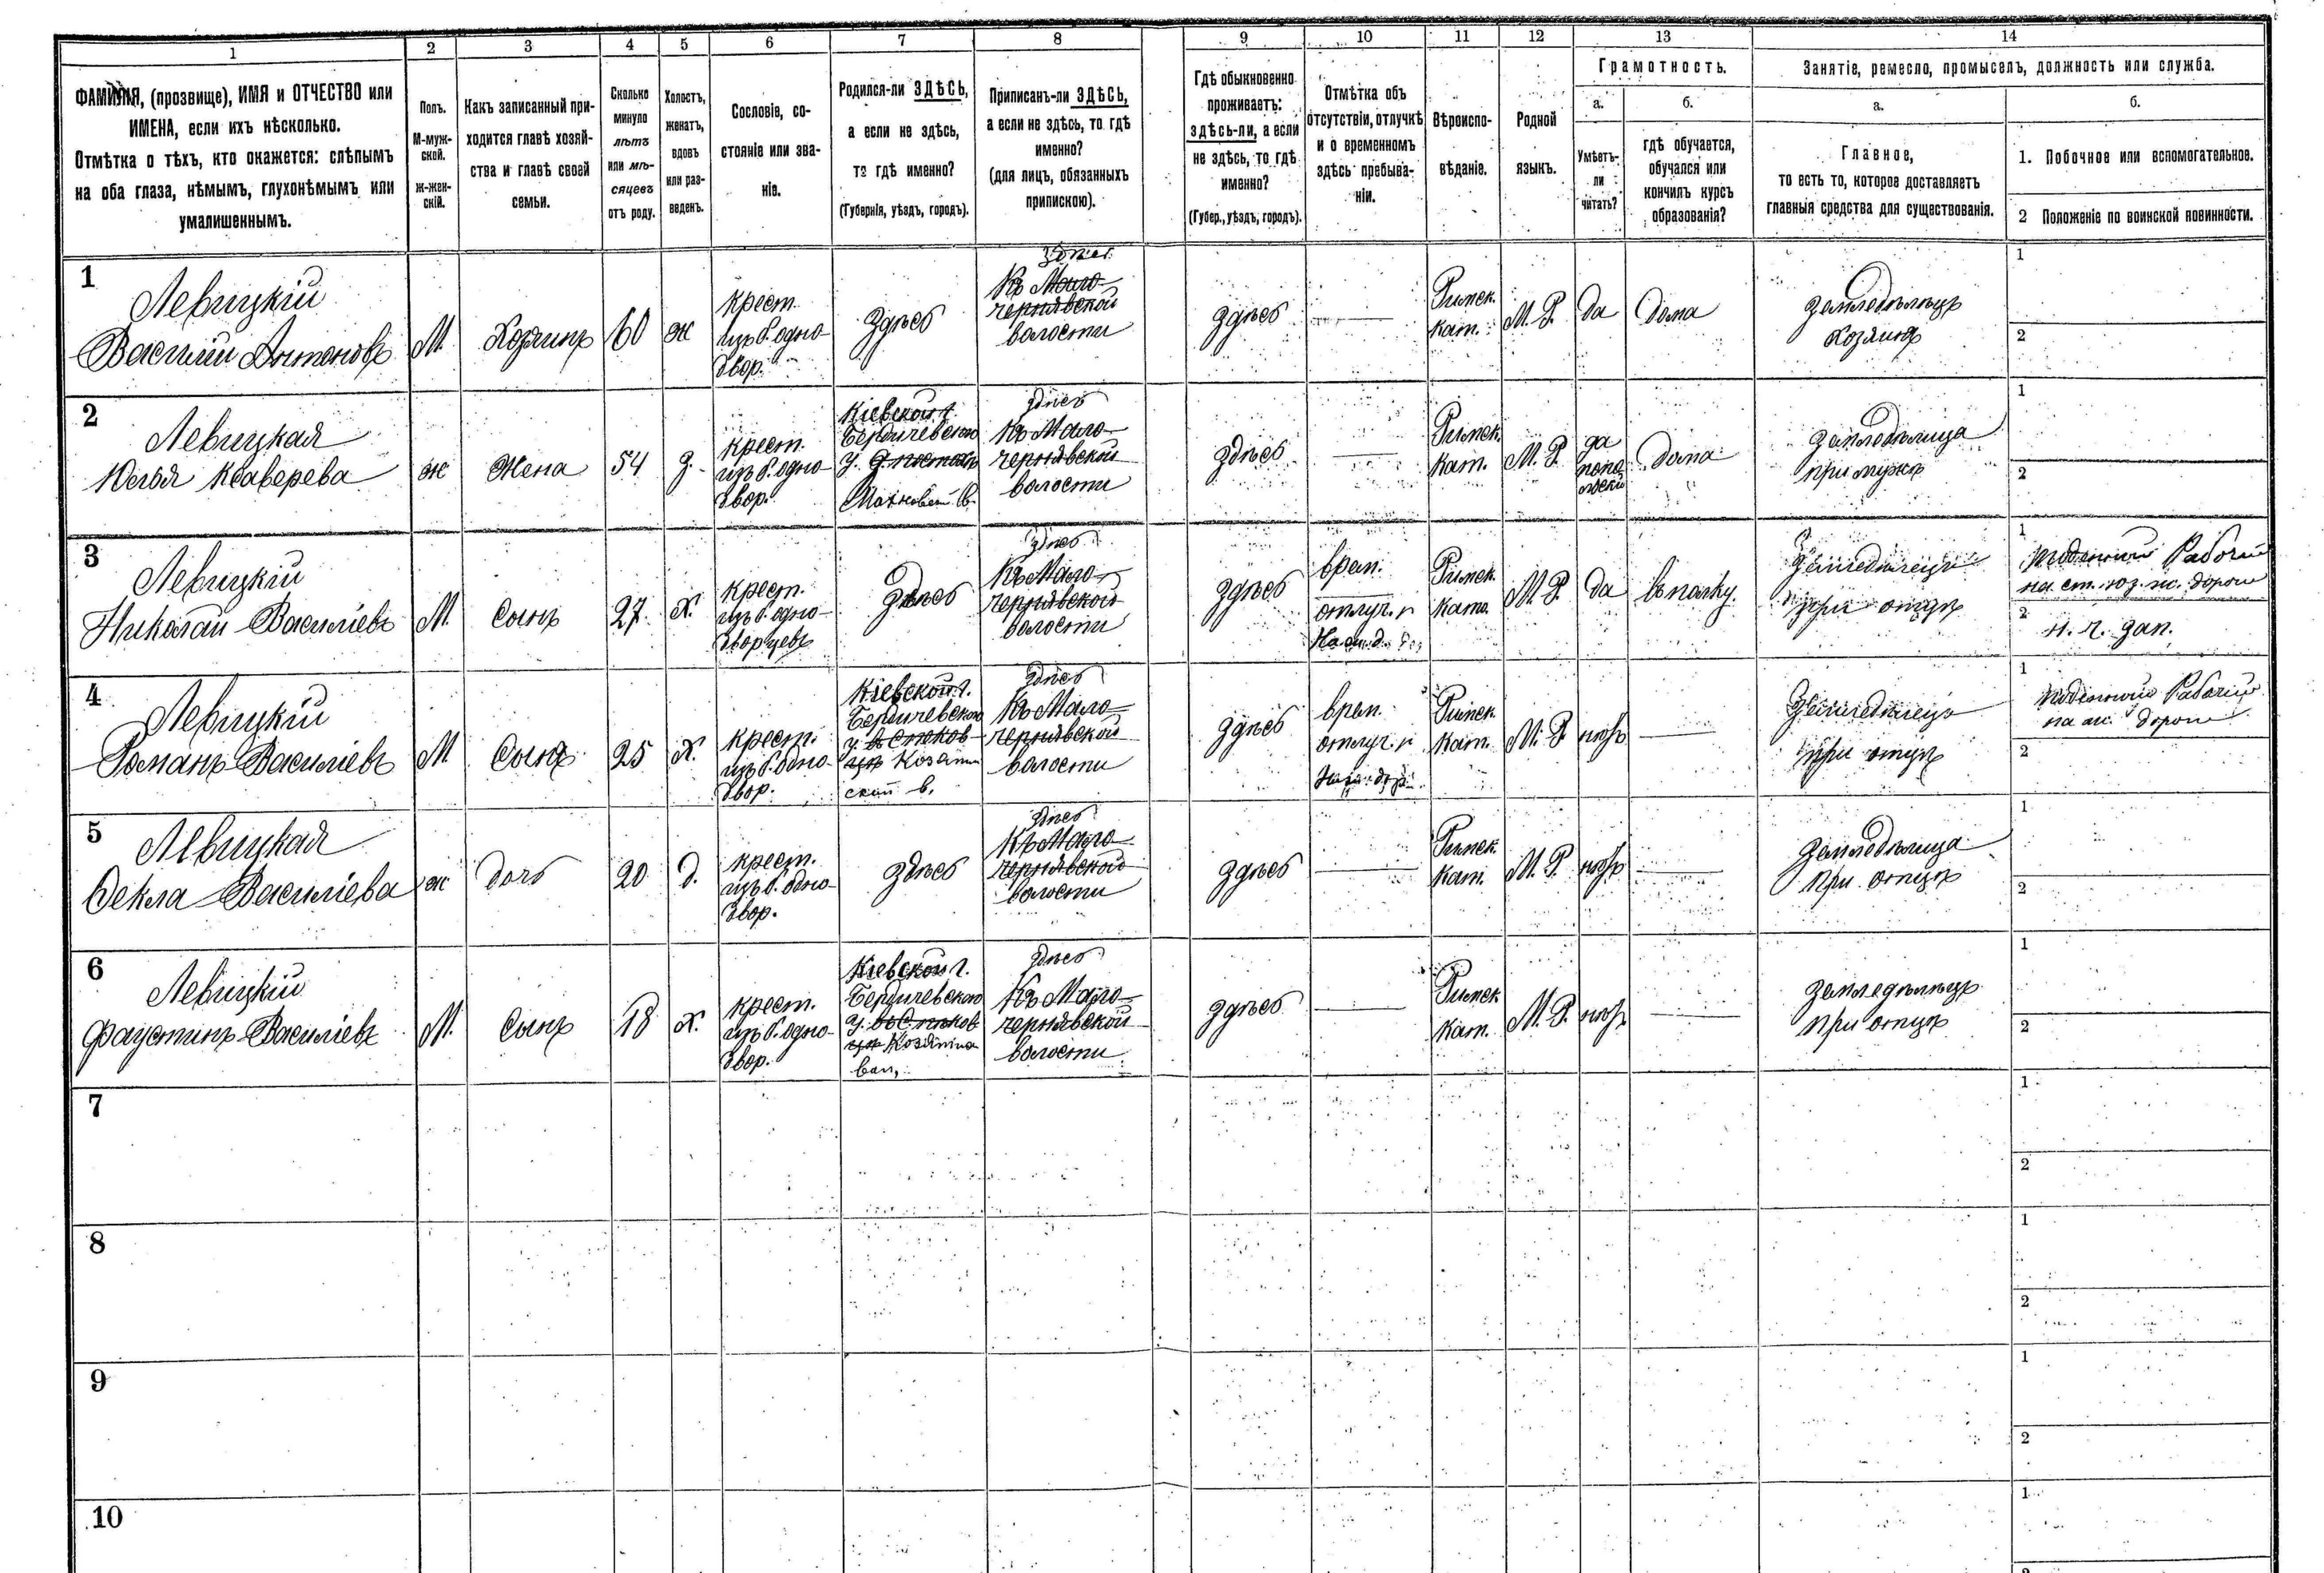 1
2
3
4
5
6
7
8
9
10
11
12
13
14
ФАМИЛІЯ, (прозвище), ИМЯ и ОТЧЕСТВО или
ИМЕНА, если ихъ нѣсколько.
Отмѣтка о тѣхъ, кто окажется: слѣпымъ
на оба глаза, нѣмымъ, глухонѣмымъ или
умалишеннымъ.
Полъ.
М-муж-
ской.
Ж-жен-
скій.
Какъ записанный при-
ходится главѣ хозяй-
ства и главѣ своей
семьи.
Сколько
минуло
лѣтъ
или мѣ-
сяцевъ
отъ роду.
Холостъ,
женатъ,
вдовъ
или раз-
веденъ.
Сословіе, со-
стояніе или зва-
ніе.
Родился-ли ЗДѢСЬ,
а если не здѣсь,
то гдѣ именно?
(Губернія, уѣздъ, городъ).
Приписанъ-ли ЗДѢСЬ,
а если не здѣсь, то гдѣ
именно?
(для лицъ, обязанныхъ
припискою).
Гдѣ обыкновенно
проживаетъ:
здѣсь-ли, а если
не здѣсь, то гдѣ
именно?
(Губер., уѣздъ, городъ).
Отмѣтка объ
отсутствіи, отлучкѣ
и о временномъ
здѣсь пребыва-
ніи.
Вѣроиспо-
вѣданіе.
Родной
языкъ.
Грамотность.
а.
Умѣетъ-
ли
читать?
б.
гдѣ обучается,
обучался или
кончилъ курсъ
образованія?
Занятіе, ремесло, промыселъ, должность или служба.
а.
Главное,
то есть то, которое доставляетъ
главныя средства для существованія.
б.
1. Побочное или вспомогательное.
2 Положеніе по воинской повинности.
1
Левицкій
Василій Антоновъ
М
Хозяинъ
60
ж
крест.
изъ б. одно-
двор.
Здѣсь
здѣсь
Къ Мало-
чернявской
волости
здѣсь
Римск.
кат.
М. Р.
да
дома
земледѣлецъ
хозяинъ
1
2
2
Левицкая
Ксаверева
ж
Жена
54
з.
крест.
изъ б. одно-
двор.
Кіевской г.
Бердичевскаго
у.
Махновск. в.
здѣсь
Къ Мало-
чернявской
волости
здѣсь
Римск.
кат.
М. Р.
да
дома
земледѣлица
при мужѣ
1
2
3
Левицкій
Николай Василіевъ
М.
Сынъ
27.
х.
крест.
изъ б. одно-
дворцевъ
Здѣсь
здѣсь
Къ Мало-
чернявской
волости
здѣсь
врем.
отлуч.
Римск.
като.
М. Р.
да
земледѣлецъ
при отцѣ
1
поденный рабочій
на ст. юз. ж. дороги
2
4
Левицкій
Романъ Василіевъ
М
Сынъ
25
х.
крест.
изъ б. одно-
двор.
Кіевской г.
Бердичевскаго
у.
здѣсь
Къ Мало-
чернявской
волости
здѣсь
врем.
отлуч.
Римск.
кат.
М. Р.
нѣтъ
земледѣлецъ
при отцѣ
1
поденный рабочій
на ж. дороги
2
5
Левицкая
Текла Василіева
ж
дочь
20
д.
крест.
изъ б. одно-
двор.
здѣсь
здѣсь
Къ Мало-
чернявской
волости
здѣсь
Римск.
кат.
М. Р.
нѣтъ
земледѣлица
при отцѣ
1
2
6
Левицкій
Фаустинъ Василіевъ
М.
Сынъ
18
х.
крест.
изъ б. одно-
двор.
Кіевской г.
Бердичевскаго
у.
здѣсь
Къ Мало-
чернявской
волости
здѣсь
Римск.
кат.
М. Р.
нѣтъ
земледѣлецъ
при отцѣ
1
2
7
1
2
8
1
2
9
1
2
10
1